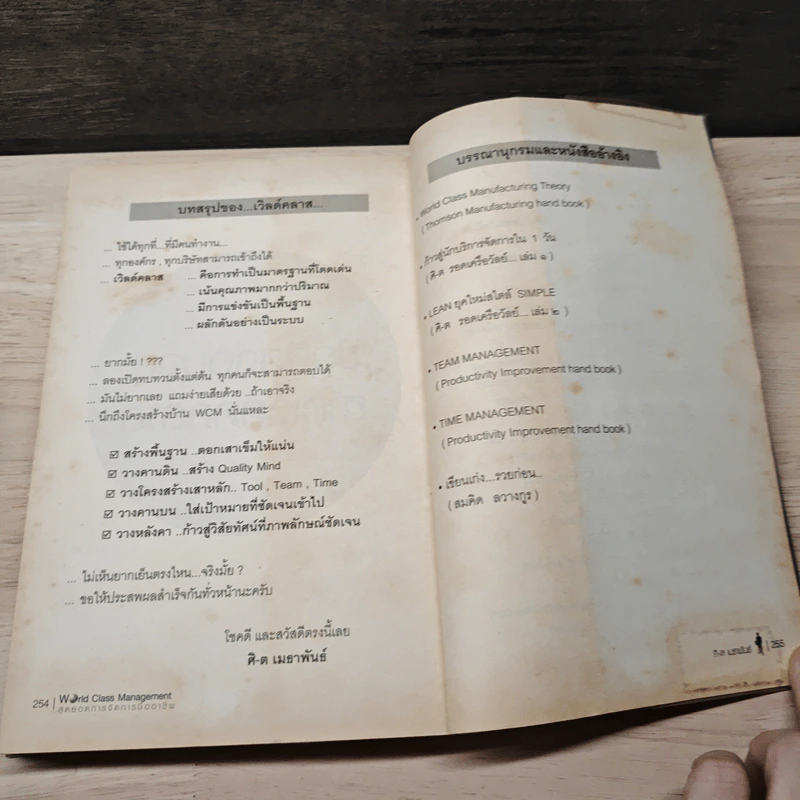 บทสรุปของ...เวิลด์คลาส...
... ใช้ได้ทุกที่...ที่มีคนทำงาน...
... ทุกองค์กร , ทุกบริษัทสามารถเข้าถึงได้
... เวิลด์คลาส ... คือการทำเป็นมาตรฐานที่โดดเด่น
... เน้นคุณภาพมากกว่าปริมาณ
... มีการแข่งขันเป็นพื้นฐาน
... ผลักดันอย่างเป็นระบบ
... ยากมั้ย ! ???
... ลองเปิดทบทวนตั้งแต่ต้น ทุกคนก็จะสามารถตอบได้
... มันไม่ยากเลย แถมง่ายเสียด้วย ..ถ้าเอาจริง
... นึกถึงโครงสร้างบ้าน WCM นั่นแหละ
☑ สร้างพื้นฐาน ..ตอกเสาเข็มให้แน่น
☑ วางคานดิน ..สร้าง Quality Mind
☑ วางโครงสร้างเสาหลัก.. Tool , Team , Time
☑ วางคานบน ..ใส่เป้าหมายที่ชัดเจนเข้าไป
☑ วางหลังคา ..ก้าวสู่วิสัยทัศน์ที่ภาพลักษณ์ชัดเจน
... ไม่เห็นยากเย็นตรงไหน...จริงมั้ย ?
... ขอให้ประสพผลสำเร็จกันทั่วหน้านะครับ
โชคดี และสวัสดีตรงนี้เลย
ศิ-ต เมธาพันธ์
254 | World Class Management
สุดยอดการจัดการมืออาชีพ
บรรณานุกรมและหนังสืออ้างอิง
• World Class Manufacturing Theory
( Thomson Manufacturing hand book )
• ก้าวสู่นักบริการจัดการใน 1 วัน
( ศิ-ต รอดเครือวัลย์... เล่ม ๑ )
• LEAN ยุคใหม่สไตล์ SIMPLE
( ศิ-ต รอดเครือวัลย์... เล่ม ๒ )
• TEAM MANAGEMENT
( Productivity Improvement hand book )
• TIME MANAGEMENT
( Productivity Improvement hand book )
• เขียนเก่ง...รวยก่อน..
( สมคิด ลวางกูร )
ศิ-ต เมธาพันธ์ | 255